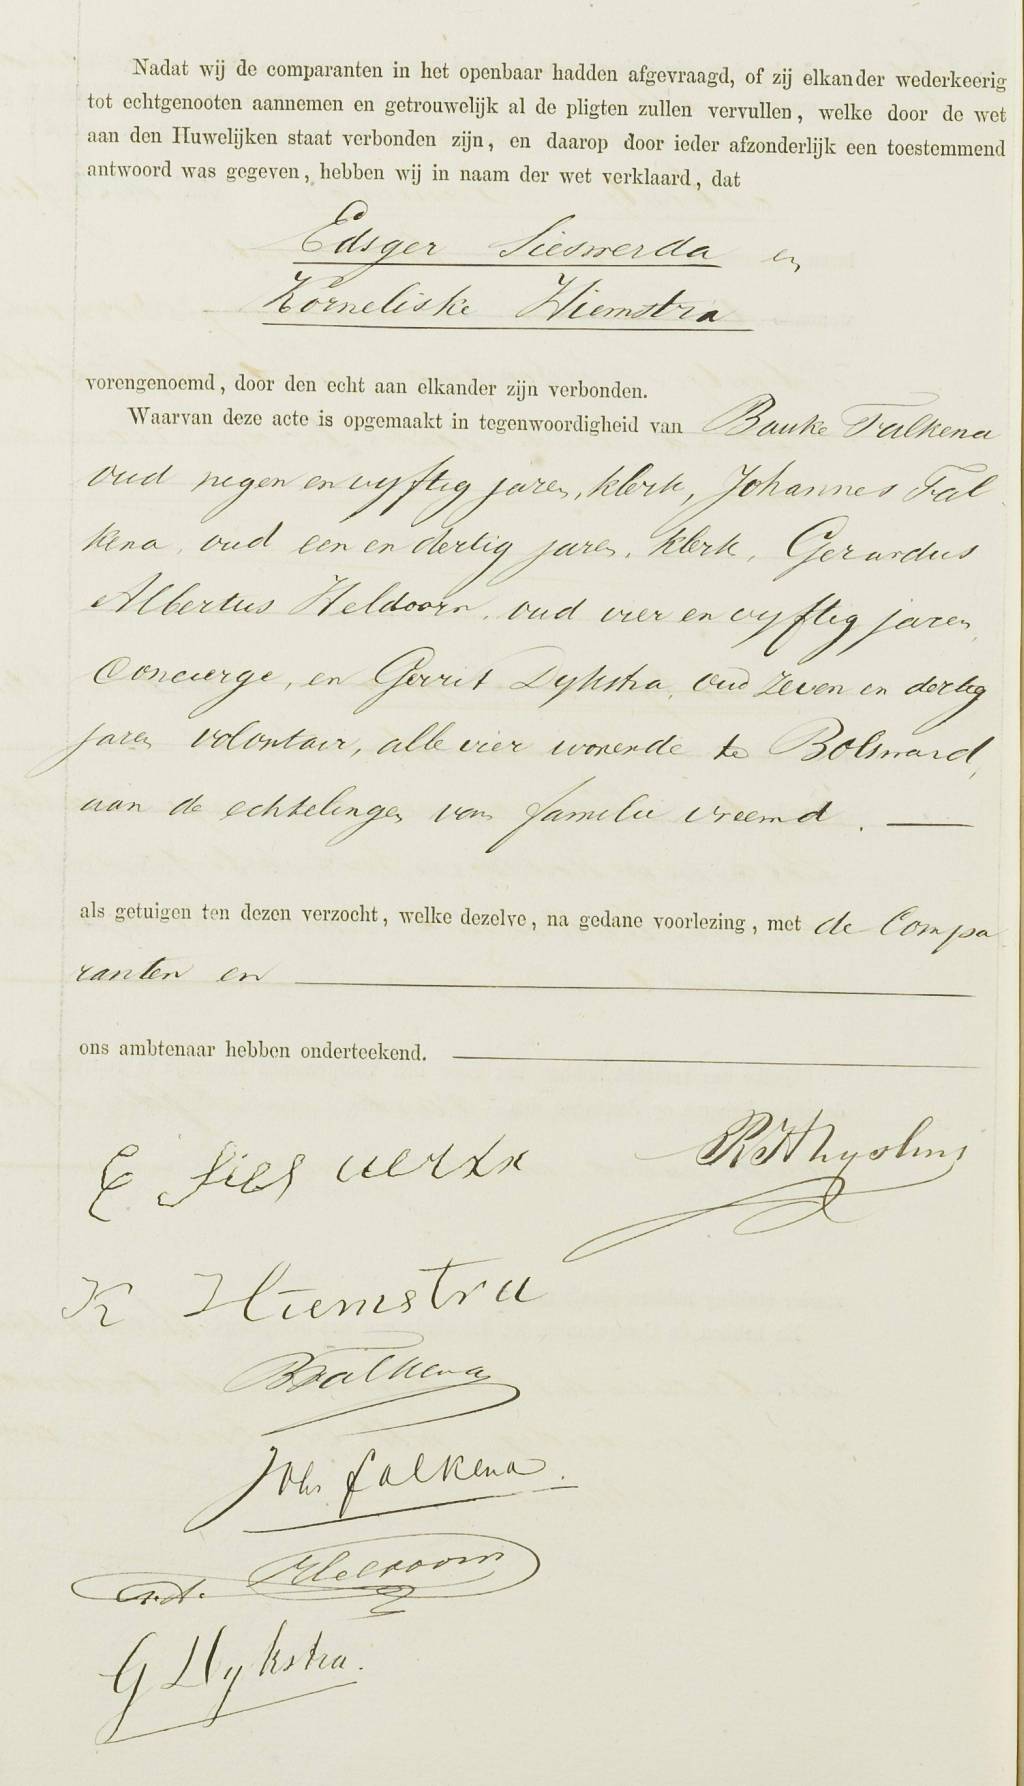 Nadat wij de comparanten in het openbaar hadden afgevraagd, of zij elkander wederkeerig
tot echtgenooten aannemen en getrouwelijk al de pligten zullen vervullen, welke door de wet
aan den Huwelijken staat verbonden zijn, en daarop door ieder afzonderlijk een toestemmend
antwoord was gegeven, hebben wij in naam der wet verklaard, dat
Edsger Sieswerda en
Korneliske Hiemstra
vorengenoemd, door den echt aan elkander zijn verbonden.
Waarvan deze acte is opgemaakt in tegenwoordigheid van Bauke Falkena
oud negen en vyftig jaren, klerk, Johannes Fal
kena, oud een en dertig jaren, klerk, Gerardus
Albertus Heldoorn, oud vier en vyftig jaren,
Concierge, en Gerrit Dykstra, oud zeven en dertig
jaren volontair, alle vier wonende te Bolsward,
aan de echtelingen van familie vreemd.
als getuigen ten dezen verzocht, welke dezelve, na gedane voorlezing, met de Compa
ranten en
ons ambtenaar hebben onderteekend.
E Sieswerda
K Hiemstra
B Falkena
Joh. Falkena.
G.A. Heldoorn
G Dykstra.